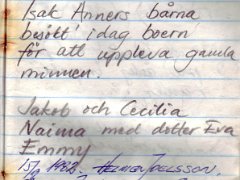 Isak Anners bårna
besött idag boern
för att uppleva gamla
minnen.
Jakob och Cecilia
Naima med dotter Eva
Emmy
1982. Helmer Joelsson.